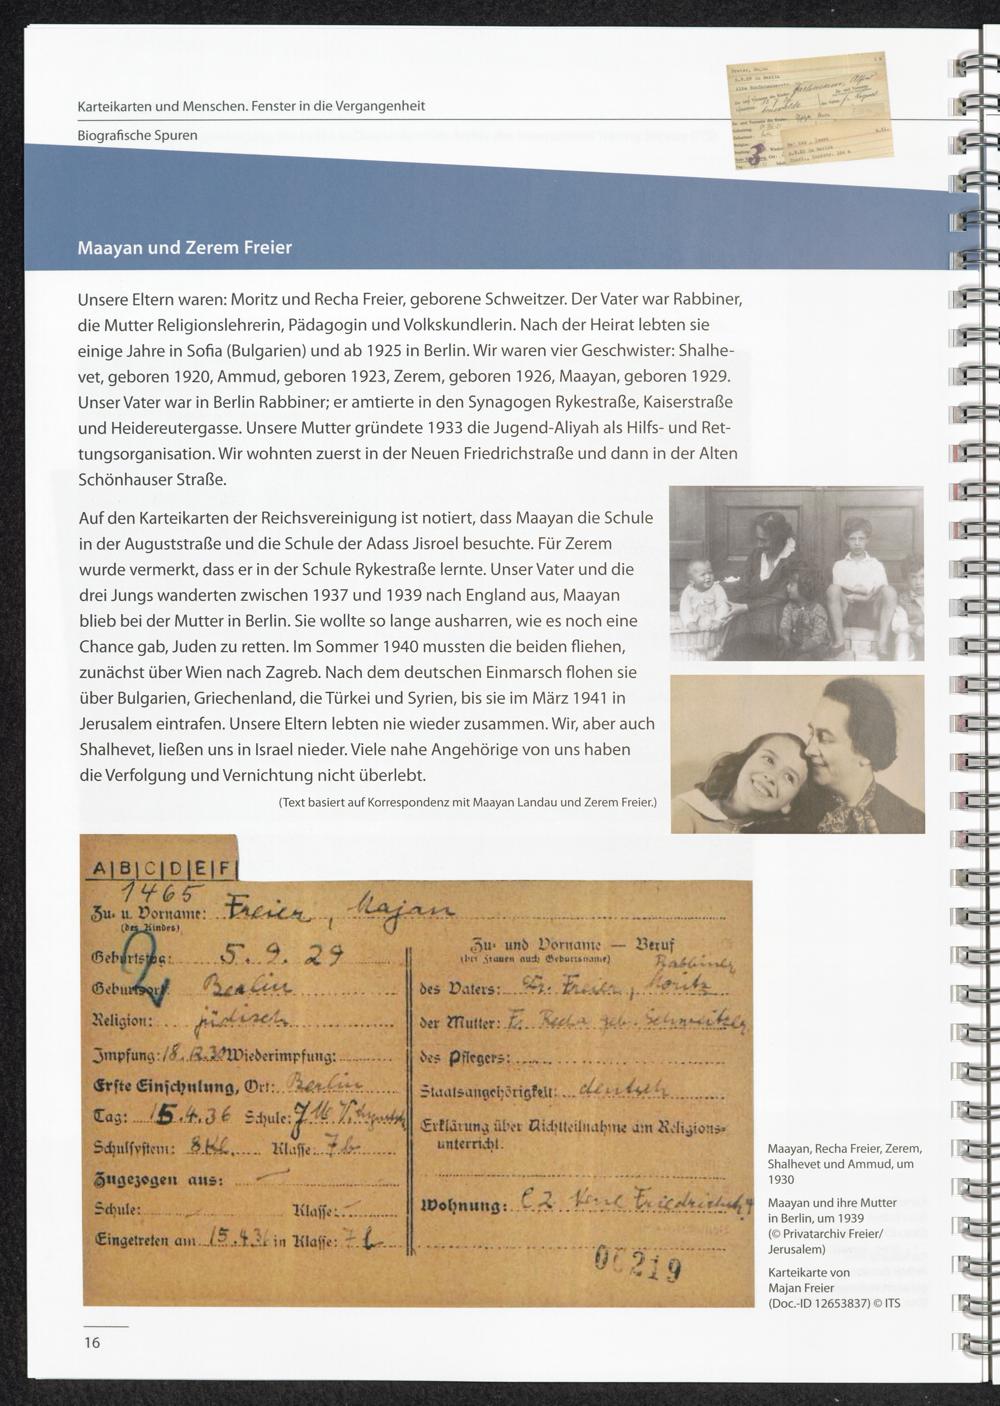 Karteikarten und Menschen. Fenster in die Vergangenheit
Biografische Spuren
Maayan und Zerem Freier
Unsere Eltern waren: Moritz und Recha Freier, geborene Schweitzer. Der Vater war Rabbiner,
die Mutter Religionslehrerin, Pädagogin und Volkskundlerin. Nach der Heirat lebten sie
einige Jahre in Sofia (Bulgarien) und ab 1925 in Berlin. Wir waren vier Geschwister: Shalhe-
vet, geboren 1920, Ammud, geboren 1923, Zerem, geboren 1926, Maayan, geboren 1929.
Unser Vater war in Berlin Rabbiner; er amtierte in den Synagogen Rykestraße, Kaiserstraße
und Heidereutergasse. Unsere Mutter gründete 1933 die Jugend-Aliyah als Hilfs- und Ret-
tungsorganisation. Wir wohnten zuerst in der Neuen Friedrichstraße und dann in der Alten
Schönhauser Straße.
Auf den Karteikarten der Reichsvereinigung ist notiert, dass Maayan die Schule
in der Auguststraße und die Schule der Adass Jisroel besuchte. Für Zerem
wurde vermerkt, dass er in der Schule Rykestraße lernte. Unser Vater und die
drei Jungs wanderten zwischen 1937 und 1939 nach England aus, Maayan
blieb bei der Mutter in Berlin. Sie wollte so lange ausharren, wie es noch eine
Chance gab, Juden zu retten. Im Sommer 1940 mussten die beiden fliehen,
zunächst über Wien nach Zagreb. Nach dem deutschen Einmarsch flohen sie
über Bulgarien, Griechenland, die Türkei und Syrien, bis sie im März 1941 in
Jerusalem eintrafen. Unsere Eltern lebten nie wieder zusammen. Wir, aber auch
Shalhevet, ließen uns in Israel nieder. Viele nahe Angehörige von uns haben
die Verfolgung und Vernichtung nicht überlebt.
(Text basiert auf Korrespondenz mit Maayan Landau und Zerem Freier.)
A|B|C|D|E|F|
1465
Zu- u. Vorname: Freier, Majan
(des Kindes)
Geburtstag: 5. 9. 29
2
Geburtsort: Berlin
Religion: jüdisch
Impfung: 18.12.30 Wiederimpfung:
Erste Einschulung, Ort: Berlin
Tag: 15.4.36 Schule: J.M.V.
Schulsystem: 8Kl. Klasse: 7b
Zugezogen aus: —
Schule: Klasse: —
Eingetreten am 15.4.36 in Klasse: 7b
Zu- und Vorname — Beruf
(bei Frauen auch Geburtsname)
Rabbiner
des Vaters: Dr. Freier, Moritz
der Mutter: F. Recha geb. Schweitzer
des Pflegers:
Staatsangehörigkeit: deutsch
Erklärung über Nichtteilnahme am Religions-
unterricht.
Wohnung: C2 Neue Friedrichstr. 4
00219
Maayan, Recha Freier, Zerem,
Shalhevet und Ammud, um
1930
Maayan und ihre Mutter
in Berlin, um 1939
(© Privatarchiv Freier/
Jerusalem)
Karteikarte von
Majan Freier
(Doc.-ID 12653837) © ITS
16